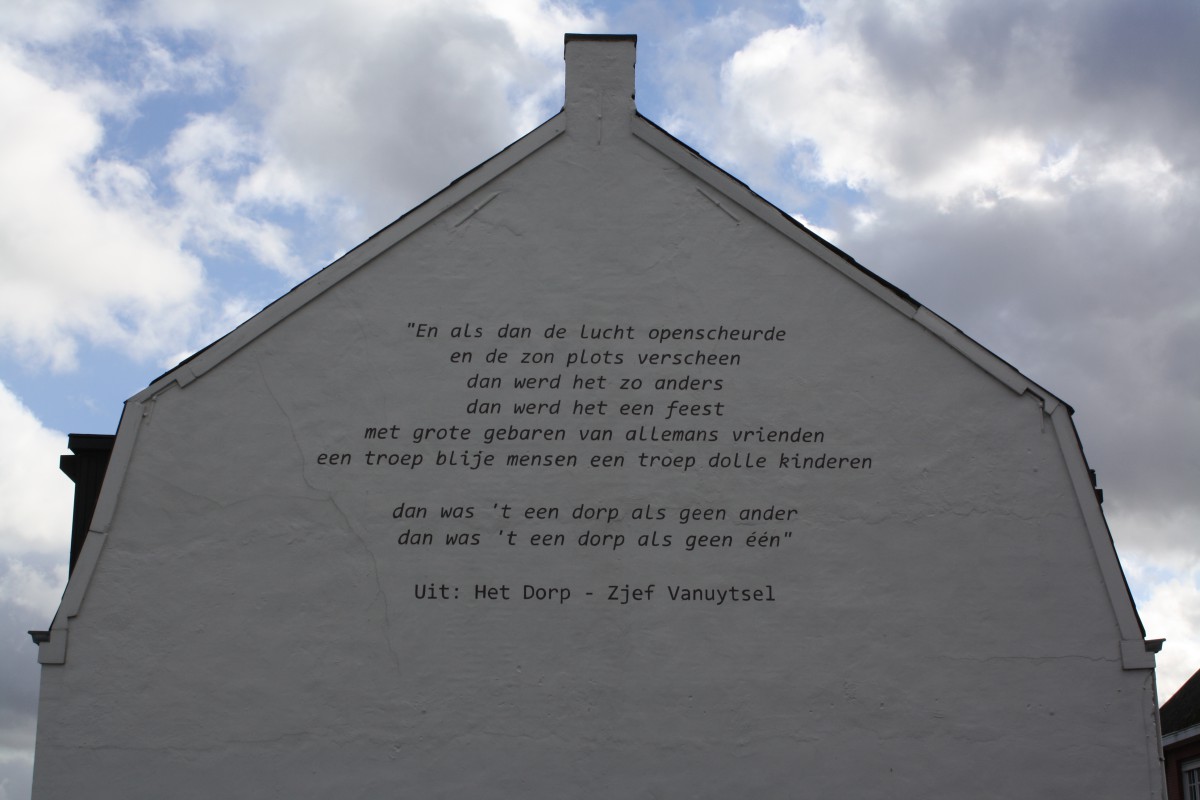 "En als dan de lucht openscheurde
en de zon plots verscheen
dan werd het zo anders
dan werd het een feest
met grote gebaren van allemans vrienden
een troep blije mensen een troep dolle kinderen
dan was 't een dorp als geen ander
dan was 't een dorp als geen één"
Uit: Het Dorp - Zjef Vanuytsel